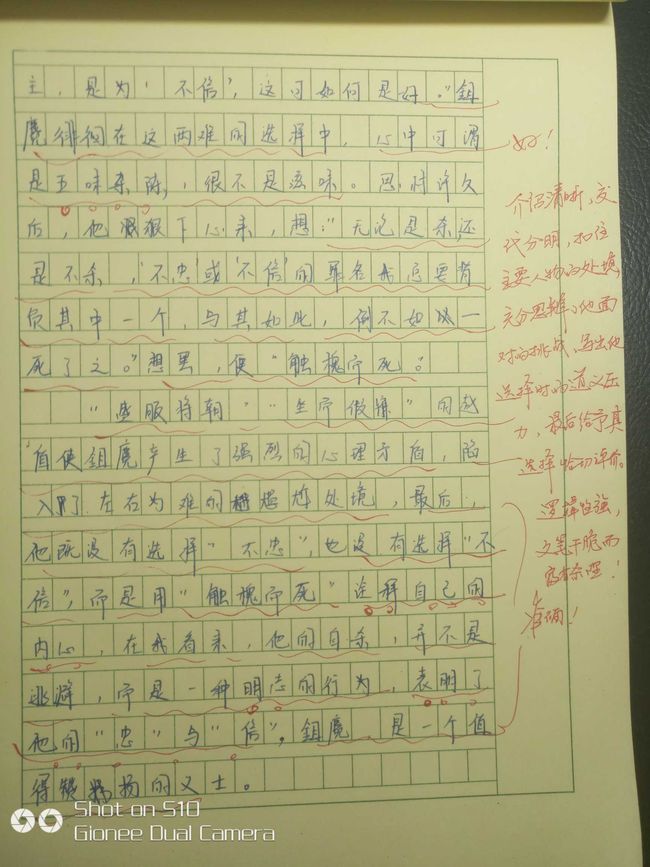 主，是为‘不信’，这可如何是好。”鉏
麑徘徊在这两难的选择中，心中可谓
是五味杂陈，很不是滋味。思忖许久
后，他狠狠下心来，想：“无论是杀还
是不杀，‘不忠’或‘不信’的罪名我总要背
负其中一个，与其如此，倒不如以一
死了之。”想罢，便“触槐而死”。
“盛服将朝”“坐而假寐”的赵
盾使鉏麑产生了强烈的心理矛盾，陷
入了左右为难的尴尬处境，最后，
他既没有选择“不忠”，也没有选择“不
信”，而是用“触槐而死”诠释自己的
内心，在我看来，他的自杀，并不是
逃避，而是一种明志的行为，表明了
他的“忠”与“信”，鉏麑，是一个值
得赞扬的义士。
好！
介绍清晰，交
代分明，扣住
主要人物的处境，
充分思辨了他面
对的挑战，写出他
选择时的道义压
力，最后给予其
选择恰切评价。
逻辑性强，
文笔干脆而
富有条理！
准确！
Shot on S10
Gionee Dual Camera